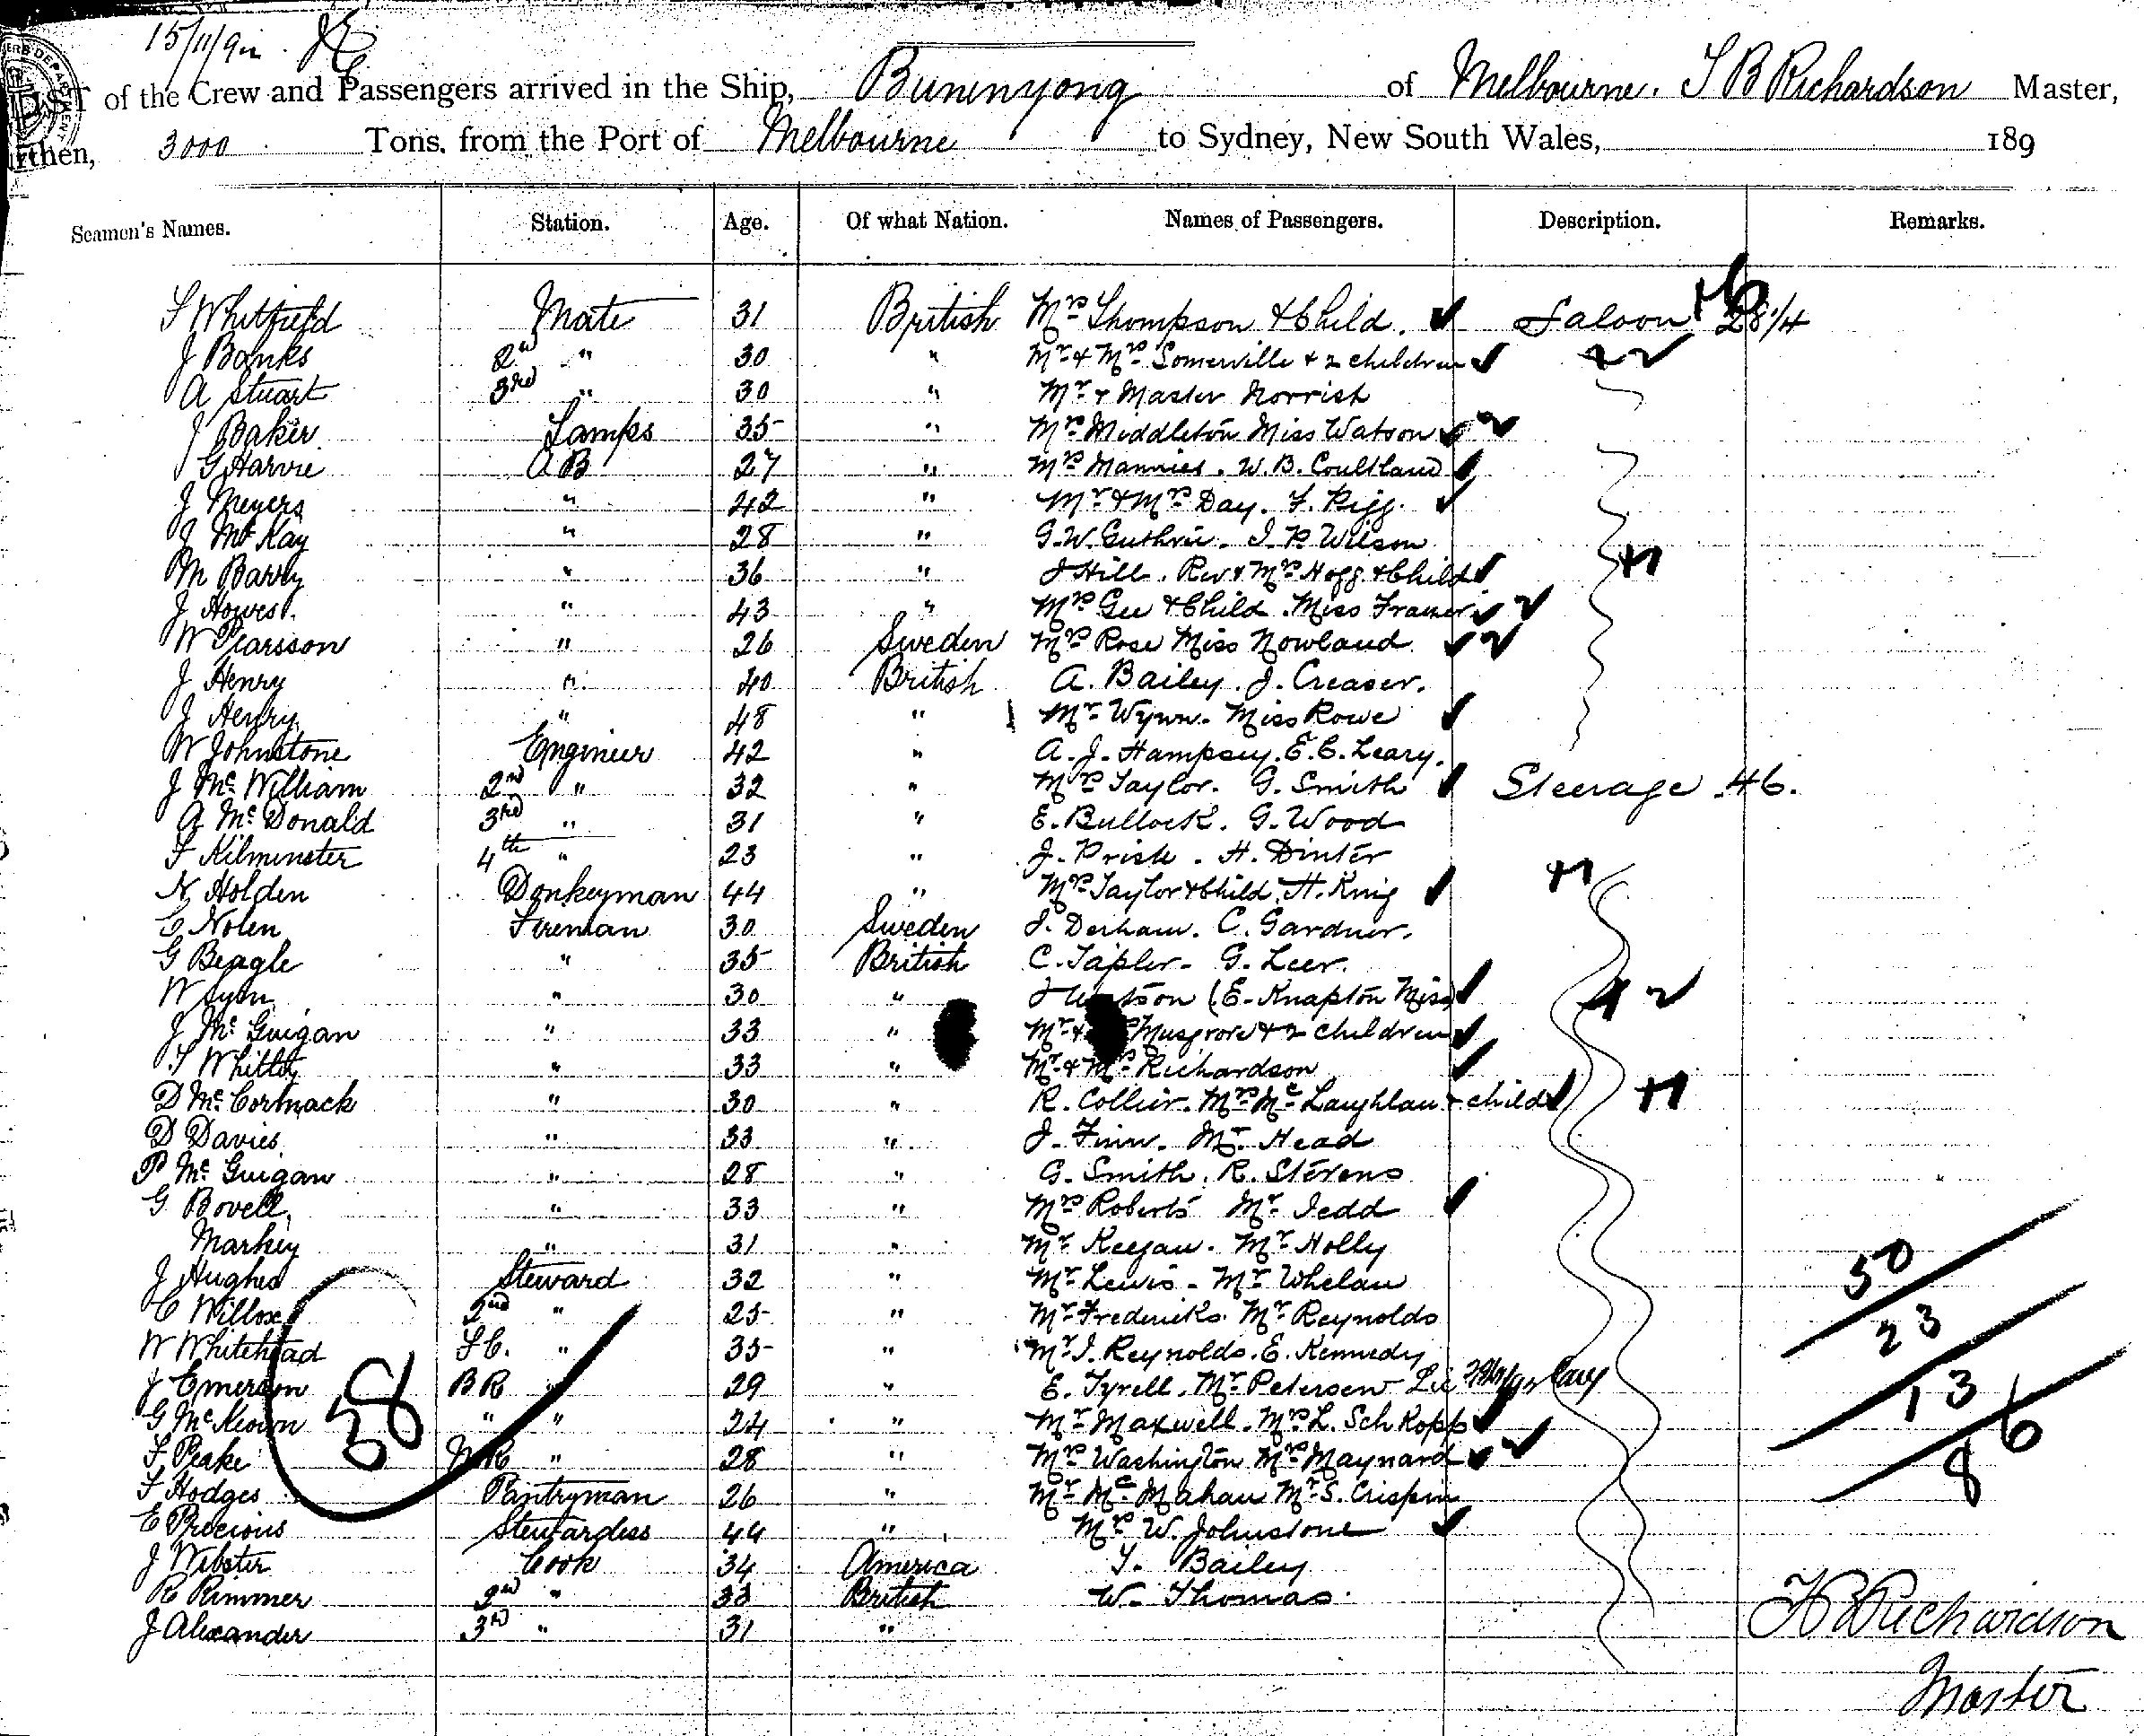 15/11/92
LIST of the Crew and Passengers arrived in the Ship, Buninyong of Melbourne. T B Richardson Master,
Burthen, 3000 Tons. from the Port of Melbourne to Sydney, New South Wales, 189
Seamen's Names. Station. Age. Of what Nation. Names of Passengers. Description. Remarks.
T Whitfield Mate 31 British Mrs Thompson & Child. Saloon
J Banks 2nd " 30 " Mr & Mrs Somerville & 2 children
A Stuart 3rd " 30 " Mr & Master Norrish
J Baker Lamps 35 " Mrs Middleton Miss Watson
G Harvie A B 27 " Mrs Mannies. W. B. Coultland
J Meyers " 42 " Mr & Mrs Day. F. Rigg.
J McKay " 28 " G. W. Guthrie. J. P. Wilson
M Barry " 36 " J Hill. Rev & Mrs Hogg & Child
J Howes. " 43 " Mrs Gee & Child. Miss Fraser
W Pearsson " 26 Sweden Mrs Rose Miss Nowland
J Henry " 40 British A. Bailey. J. Creaser.
J Henry " 48 " Mr Wynn. Miss Rowe
W Johnstone Engineer 42 " A. J. Hampsey. E. C. Leary.
J McWilliam 2nd " 32 " Mrs Taylor. G. Smith Steerage 46.
A McDonald 3rd " 31 " E. Bullock. G. Wood
F Kilminster 4th " 23 " J. Prisk. H. Dinter
N Holden Donkeyman 44 " Mrs Taylor & Child. H. King
C Nolen Fireman 30 Sweden J. Derham. C. Gardner.
G Beagle " 35 British C. Tapler. G. Leer.
W Lyon " 30 " (E. Knapton Miss)
J McGuigan " 33 " Mr & Musgrove & 2 children
T Whitty " 33 " Mr & Mrs Richardson
D McCormack " 30 " R. Collier. Mrs McLaughlan & child
D Davies " 33 " J. Finn. Mr Head
P McGuigan " 28 " G. Smith. R. Stevens
G Bovell " 33 " Mrs Roberts Mr Jedd
Markey " 31 " Mr Keegan. Mr Holly
J Hughes Steward 32 " Mr Lewis. Mr Whelan
C Willox 2nd " 25 " Mr Fredericks. Mr Reynolds
W Whitehead F C. " 35 " Mr J. Reynolds. E. Kennedy
J Emerson B R " 29 " E. Tyrell. Mr Petersen
G McKeown " " 24 " Mr Maxwell. Mrs L. Schkopp
F Peake " 28 " Mrs Washington Mrs Maynard
F Hodges Pantryman 26 " Mr McMahan Mr S. Crispin
E Precious Stewardess 44 " Mrs W. Johnstone
J Webster Cook 34 America T. Bailey
R Rimmer 2nd " 33 British W. Thomas.
J Alexander 3rd " 31 "
38
50
23
13
8 6
T B Richardson
Master